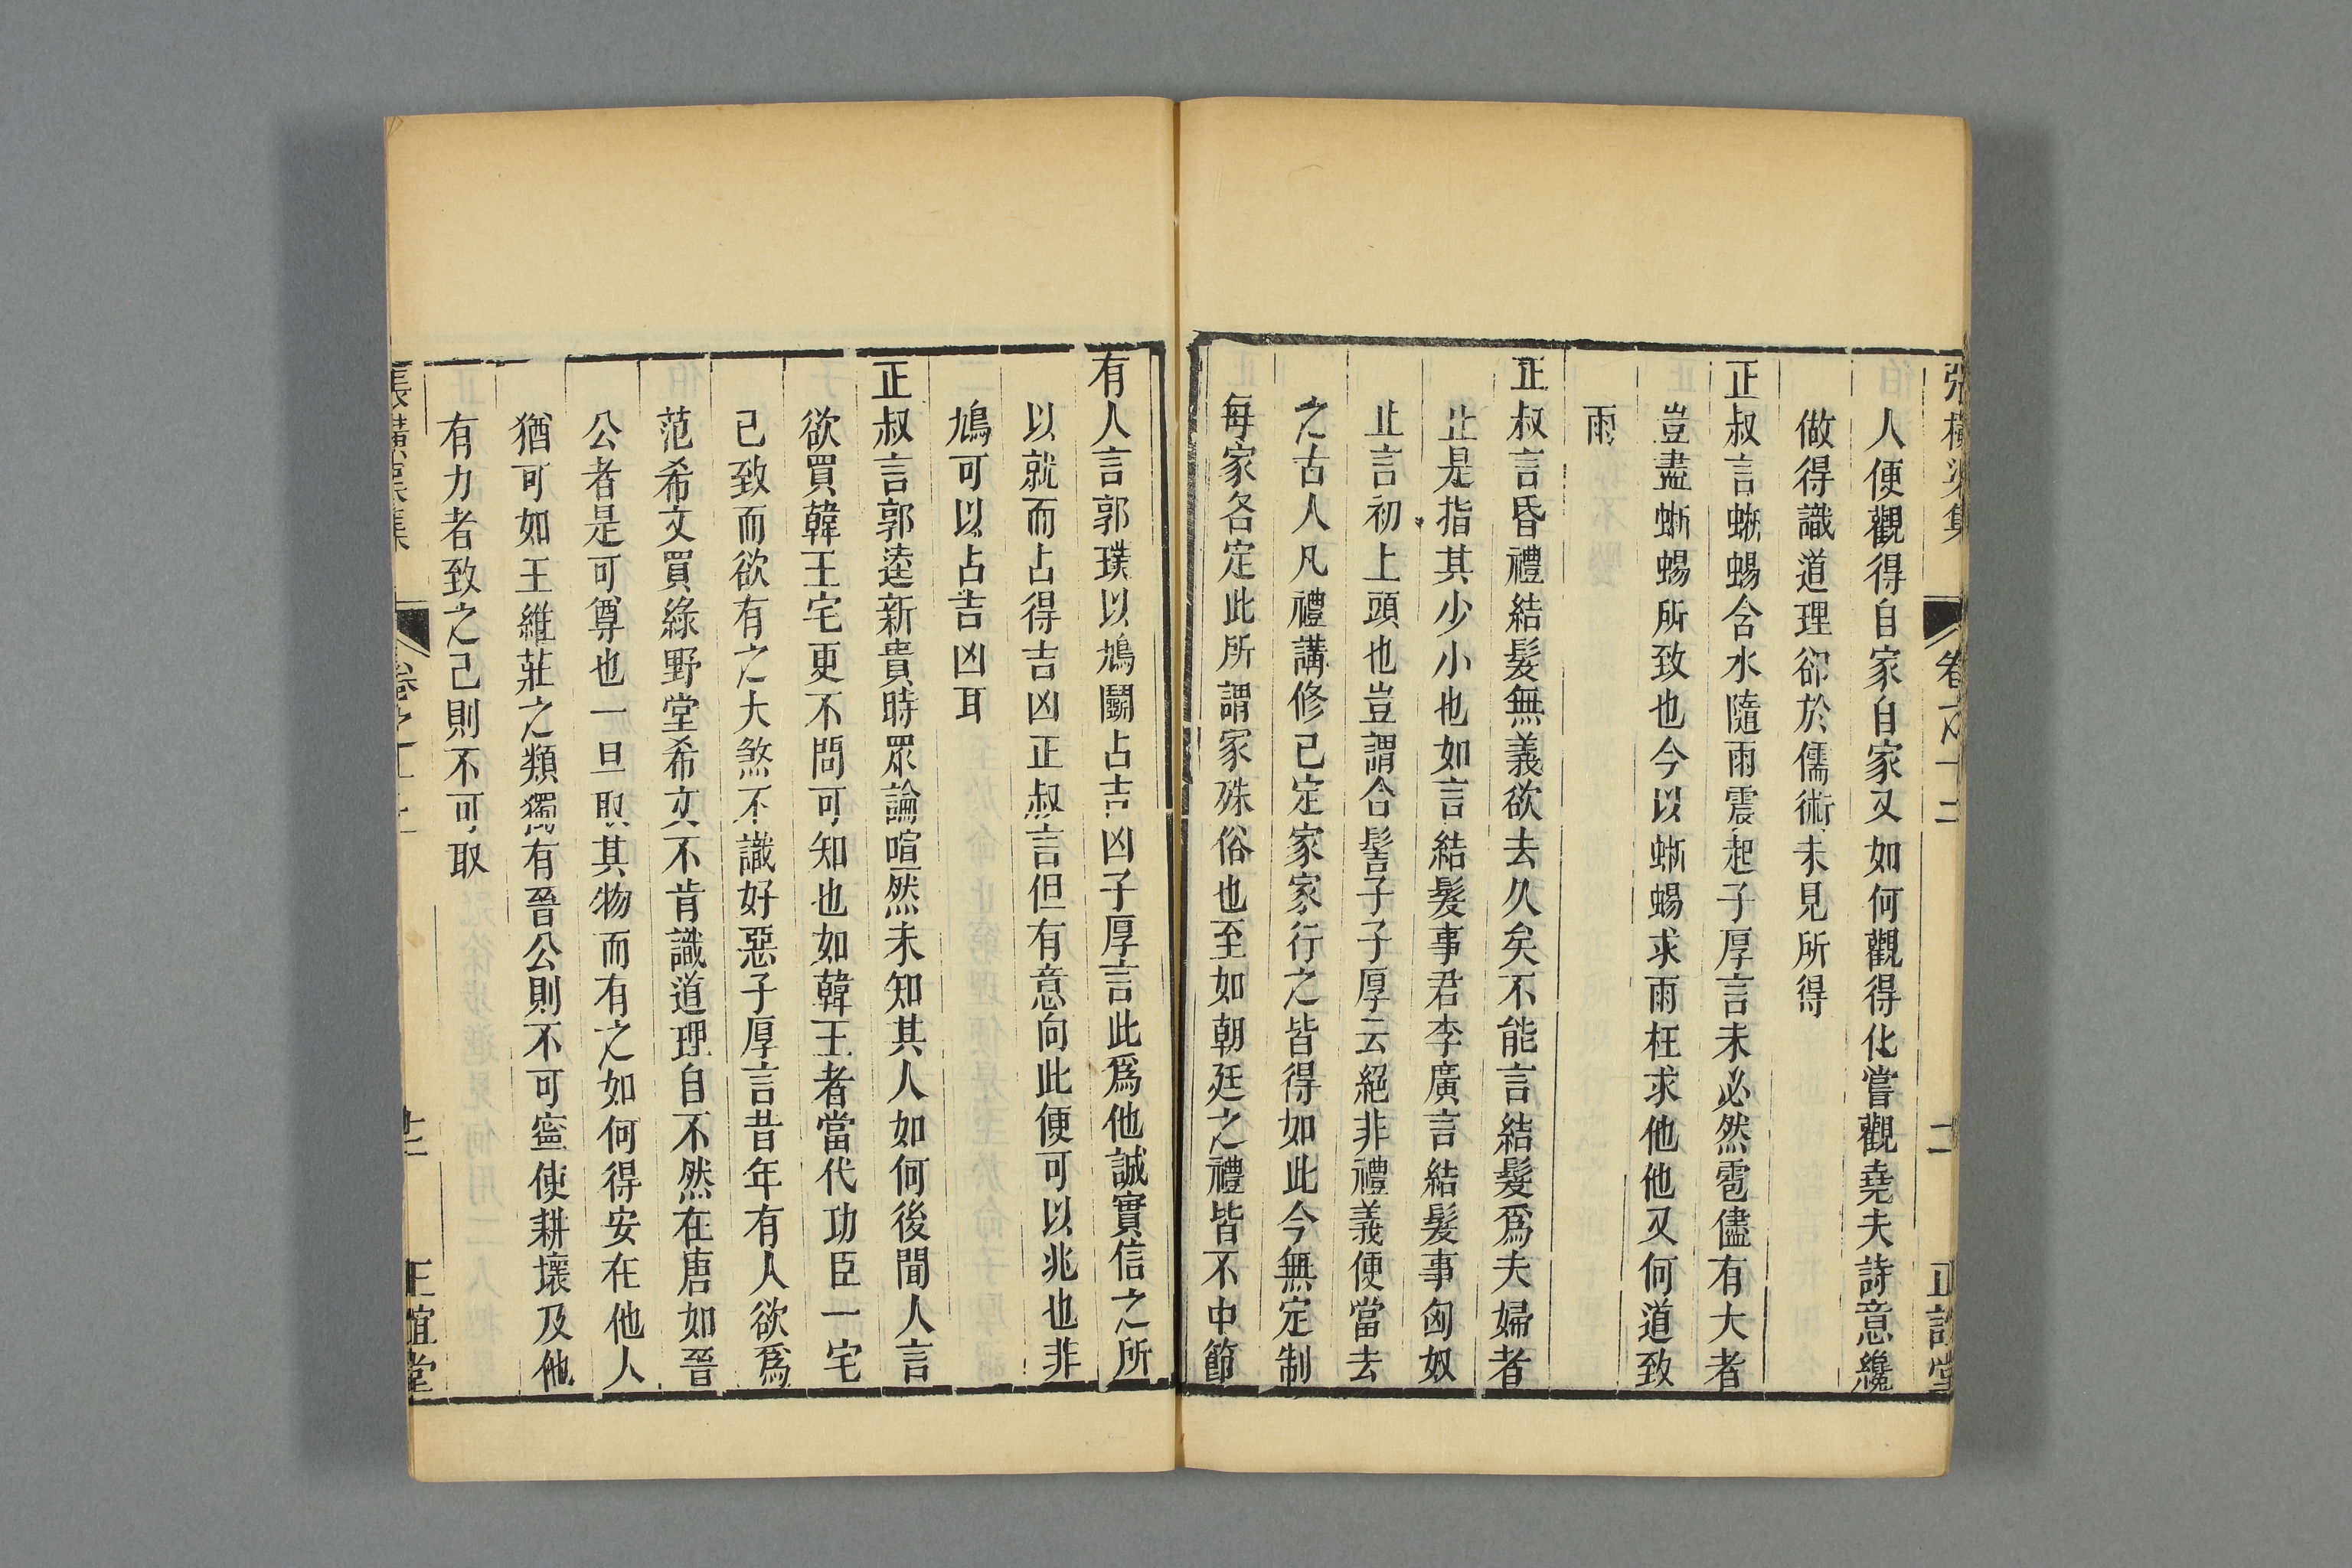 張橫渠集 卷之十二 二 正誼堂
人便觀得自家自家又如何觀得化嘗觀堯夫詩意纔
做得識道理卻於儒術未見所得
正叔言蜥蜴含水隨雨震起子厚言未必然雹儘有大者
豈盡蜥蜴所致也今以蜥蜴求雨枉求他他又何道致
雨
正叔言昏禮結髮無義欲去久矣不能言結髮爲夫婦者
止是指其少小也如言結髮事君李廣言結髮事匈奴
止言初上頭也豈謂合髻子子厚云絕非禮義便當去
之古人凡禮講修已定家家行之皆得如此今無定制
每家各定此所謂家殊俗也至如朝廷之禮皆不中節
有人言郭璞以鳩鬭占吉凶子厚言此爲他誠實信之所
以就而占得吉凶正叔言但有意向此便可以兆也非
鳩可以占吉凶耳
正叔言郭逵新貴時眾論喧然未知其人如何後聞人言
欲買韓王宅更不問可知也如韓王者當代功臣一宅
己致而欲有之大煞不識好惡子厚言昔年有人欲爲
范希文買綠野堂希文不肯識道理自不然在唐如晉
公者是可尊也一旦取其物而有之如何得安在他人
猶可如王維莊之類獨有晉公則不可寧使耕壞及他
有力者致之己則不可取
張橫渠集 卷之十二 正誼堂